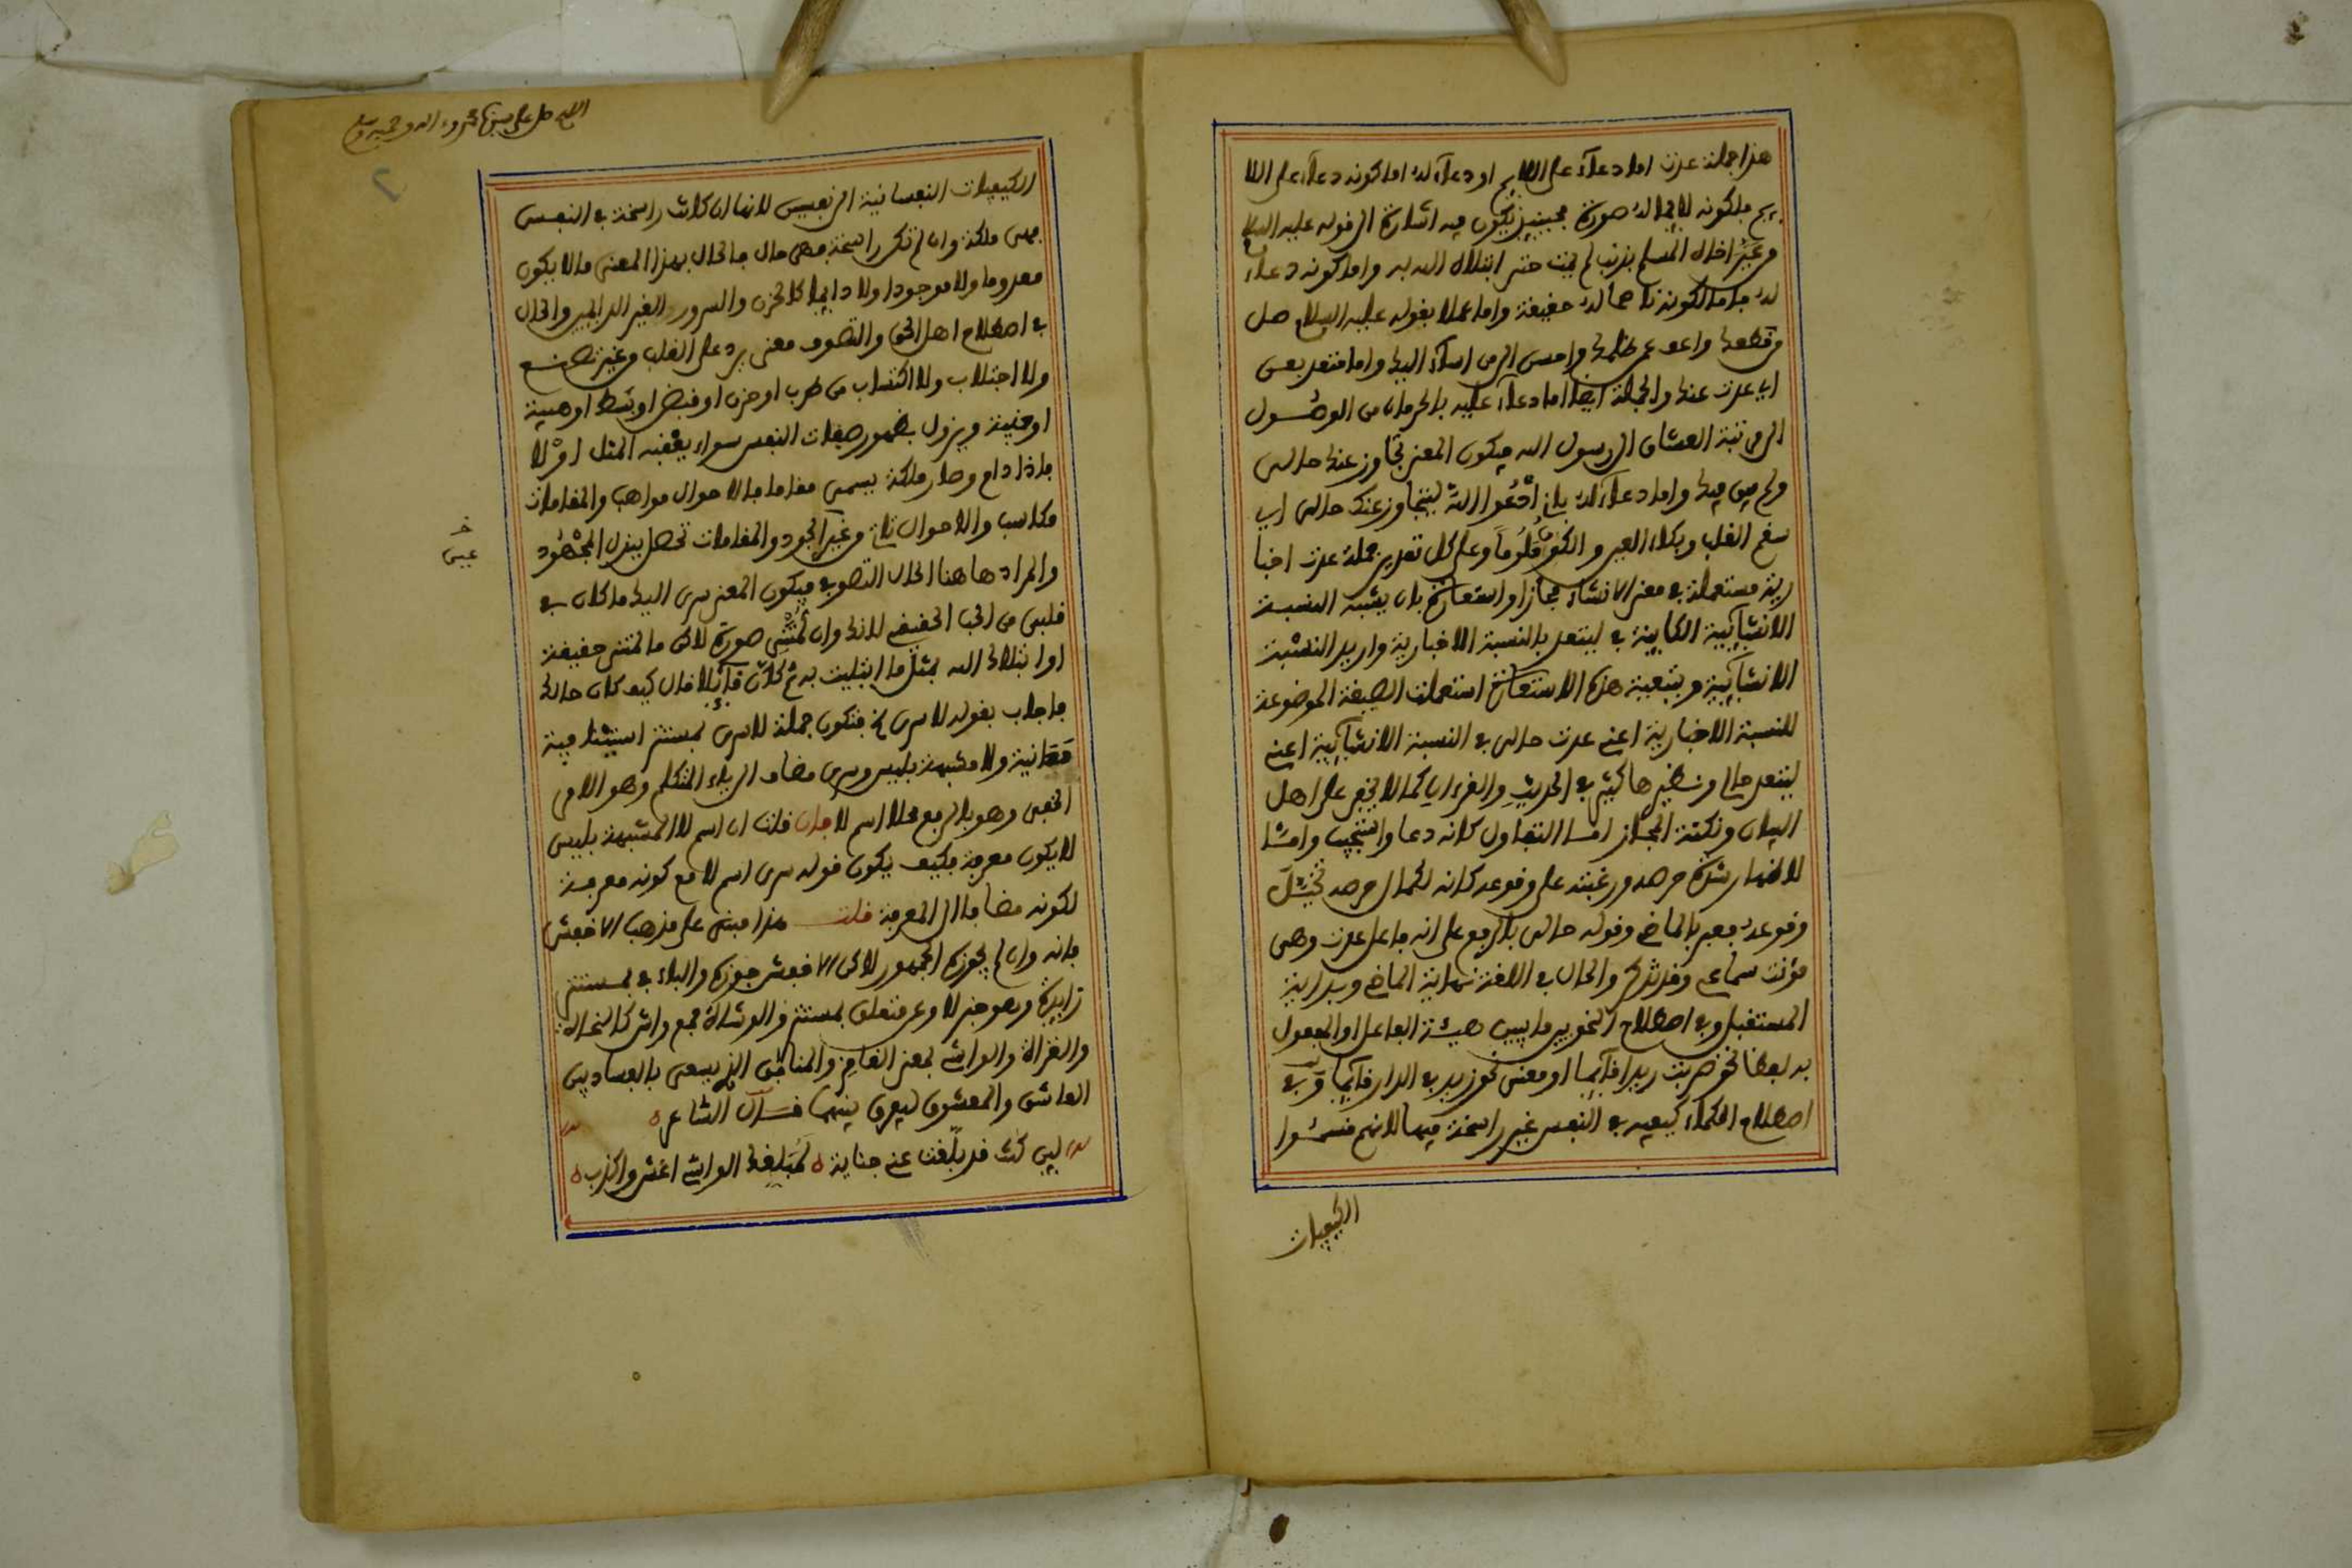 هذا جملة عدت اما دعاء على اللا
ئم فلكونه لائما له صورة فحينئذ يكون فيه اشارة الى قوله عليه السلام
من عير اخاه المسلم بذنب لم يمت حتى ابتلاه الله به واما كونه دعاء
له فاما لكونه ناصحا له حقيقة واما عملا بقوله عليه السلام صل
من قطعك واعف عمن ظلمك واحسن الى من اساء اليك واما متعد بعن
اي عدت عنك والجملة ايضا اما دعاء عليه بالحرمان من الوصول
الى مرتبة العشاق الى رسول الله فيكون المعنى تجاوز عنك حالى
ولم فيك واما دعاء له بان أدعوا الله ليتجاوز عنك حالى اي
سقم القلب وبكاء العين والكون ملوما وعلى كل تقدير جملة عدت اخبا
رية مستعملة في معنى الانشاء مجازا واستعارة بان يشبه النسبة
الانشائية الكاينة في ليتعد بالنسبة الاخبارية واريد النسبة
الانشائية وبتبعية هذه الاستعارة استعملت الصيغة الموضوعة
للنسبة الاخبارية اعني عدت حالى في النسبة الانشائية اعني
ليتعد حالى ونظيرها كثير في الحديث والقرءان كما لا يخفى على اهل
البيان ونكتة المجاز اما التفاول كانه دعا واستجيب واما
لاظهار شدة حرصه ورغبته على وقوعه كانه لكمال حرصه تخيل
وقوعه فعبر بالماضي وقوله حالى بالرفع على انه فاعل عدت وهى
مؤنث سماعي وقد تذكر والحال في اللغة نهاية الماضي وبداية
المستقبل وفي اصطلاح النحويين ما يبين هيئة الفاعل او المفعول
به لفظا نحو ضربت زيدا قائما او معنى نحو زيد في الدار قائما وفي
اصطلاح الحكماء كيفية في النفس غير راسخة فيها لانهم قسموا
الكيفيات
اللهم صل على سيدنا محمد وءاله وصحبه وسلم
٢
الكيفيات النفسانية الى نفسين لانها ان كانت راسخة في النفس
فهى ملكة وان لم تكن راسخة فهى حال فالحال بهذا المعنى ما لا يكون
معدوما ولا موجودا ولا دايما كالحزن والسرور الغير الدايمين والحال
في اصطلاح اهل الحق والتصوف معنى يرد على القلب من غير تصنع
ولا اجتلاب ولا اكتساب من طرب او حزن او قبض او بسط او هيبة
ويزول بظهور صفات النفس سواء يعقبه المثل اولا
فاذا دام وصار ملكة يسمى مقاما فالاحوال مواهب والمقامات
مكاسب والاحوال تاتي من عين الجود والمقامات تحصل ببذل المجهود
عين
والمراد هاهنا الحال التصوف فيكون المعنى سرى اليك ما كان في
قلبى من الحب الحقيقي لانك وان لمتنى صورة لاكن ما لمتنى حقيقة
او ابتلاك الله بمثل ما ابتليت به ثم كان قائلا قال كيف كان حالك
فاجاب بقوله لا سرى الخ فتكون جملة لا سرى بمستتر استينافية
بيانية ولا مشبهة بليس وسرى مضاف الى ياء المتكلم وهو الامر
الخفى وهو بالرفع محلا اسم لا فان قلت ان اسم لا المشبهة بليس
لا يكون معرفة فكيف يكون قوله سرى اسم لا مع كونه معرفة
لكونه مضافا الى المعرفة قلت هذا مبنى على مذهب الاخفش
فانه وان لم يجوزه الجمهور لاكن الاخفش جوزه والباء في بمستتر
زايدة وهو خبر لا وعن متعلق بمستتر والوشاة جمع واش كالنحاة
والغزاة والواشي بمعنى الغامز والمنافق الذي يسعى بالفساد بين
العاشق والمعشوق ليفرق بينهما قال الشاعر
لين كنت قد بلغت عني جناية ه لمبلغك الواشي اغش واكذب ه